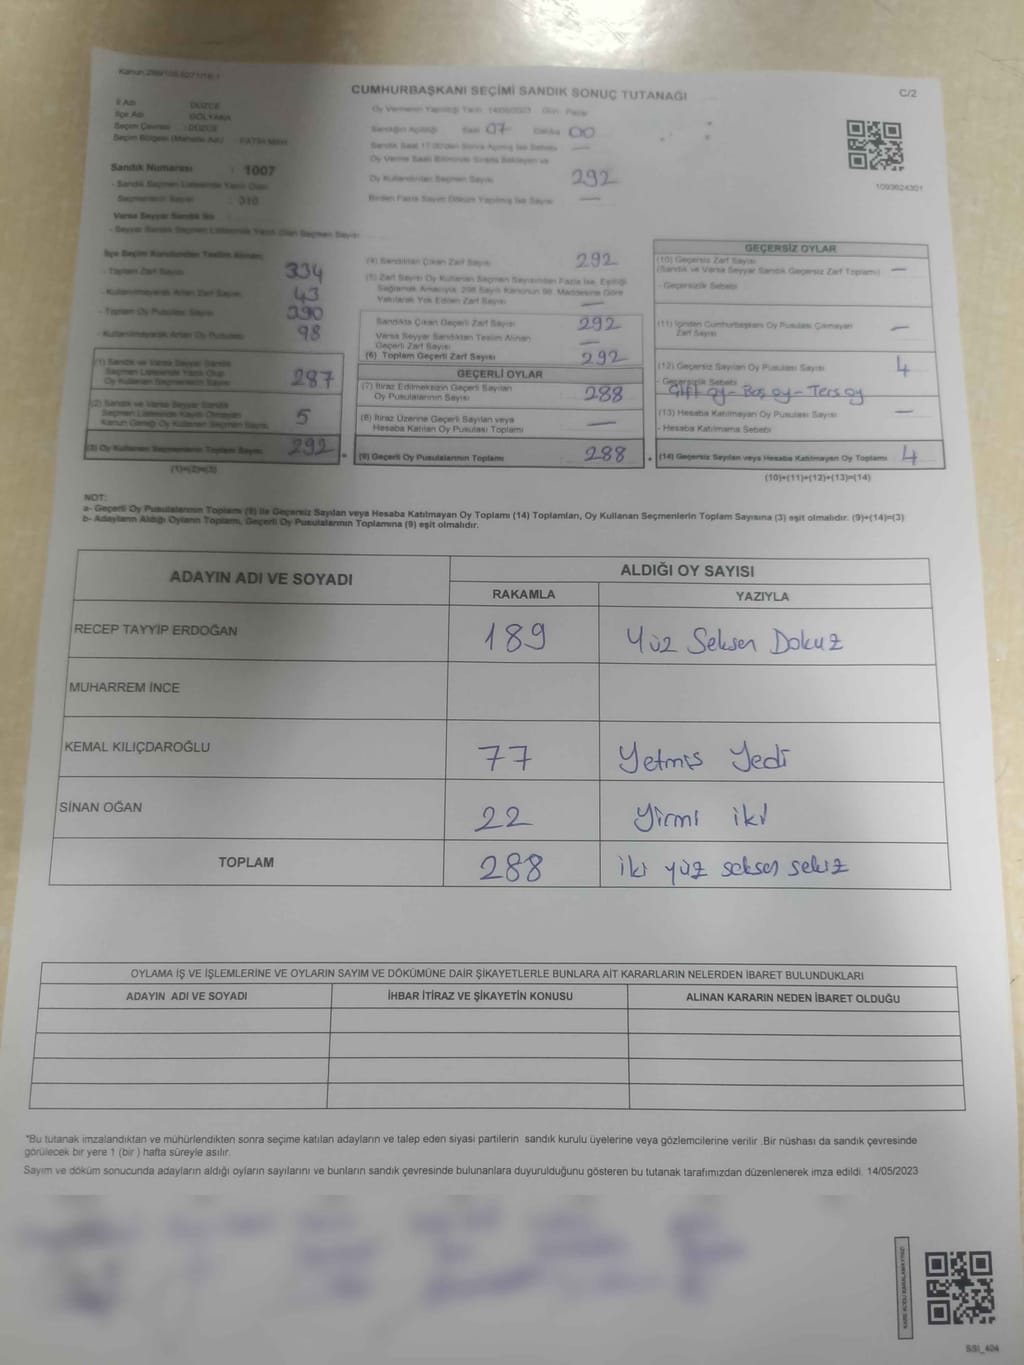 CUMHURBAŞKANI SEÇİMİ SANDIK SONUÇ TUTANAĞI
C/2
İl Adı DÜZCE
İlçe Adı GÖLYAKA
Seçim Çevresi : DÜZCE
Seçim Bölgesi (Mahalle Adı) :
Oy Vermenin Yapıldığı Tarih 14/05/2023 Gün Pazar
Sandığın Açıldığı Saat 07 Dakika 00
Sandık Saat 17:00'den Sonra Açılmış İse Sebebi —
Oy Verme Saati Bitiminde Sırada Bekleyen ve
Oy Kullandırılan Seçmen Sayısı 292
Birden Fazla Sayım Döküm Yapılmış İse Sayısı —
1093624301
Sandık Numarası : 1007
- Sandık Seçmen Listesinde Yazılı Olan
Seçmenlerin Sayısı : 310
Varsa Seyyar Sandık No
- Seyyar Sandık Seçmen Listesinde Yazılı Olan Seçmen Sayısı
İlçe Seçim Kurulundan Teslim Alınan;
- Toplam Zarf Sayısı 334
- Kullanılmayarak Artan Zarf Sayısı 43
- Toplam Oy Pusulası Sayısı 390
- Kullanılmayarak Artan Oy Pusulası 98
(1) Sandık ve Varsa Seyyar Sandık
Seçmen Listesinde Yazılı Olup
Oy Kullanan Seçmenlerin Sayısı 287
(2) Sandık ve Varsa Seyyar Sandık
Seçmen Listesinde Kayıtlı Olmayan
Kanun Gereği Oy Kullanan Seçmen Sayısı 5
(3) Oy Kullanan Seçmenlerin Toplam Sayısı 292
(1)+(2)=(3)
(4) Sandıktan Çıkan Zarf Sayısı 292
(5) Zarf Sayısı Oy Kullanan Seçmen Sayısından Fazla İse, Eşitliği
Sağlamak Amacıyla, 298 Sayılı Kanunun 98. Maddesine Göre
Yakılarak Yok Edilen Zarf Sayısı —
Sandıkta Çıkan Geçerli Zarf Sayısı 292
Varsa Seyyar Sandıktan Teslim Alınan
Geçerli Zarf Sayısı —
(6) Toplam Geçerli Zarf Sayısı 292
GEÇERLİ OYLAR
(7) İtiraz Edilmeksizin Geçerli Sayılan
Oy Pusulalarının Sayısı 288
(8) İtiraz Üzerine Geçerli Sayılan veya
Hesaba Katılan Oy Pusulası Toplamı —
(9) Geçerli Oy Pusulalarının Toplamı 288
GEÇERSİZ OYLAR
(10) Geçersiz Zarf Sayısı
(Sandık ve Varsa Seyyar Sandık Geçersiz Zarf Toplamı) —
- Geçersizlik Sebebi
(11) İçinden Cumhurbaşkanı Oy Pusulası Çıkmayan
Zarf Sayısı —
(12) Geçersiz Sayılan Oy Pusulası Sayısı 4
- Geçersizlik Sebebi
Çift oy - Boş oy - Ters oy
(13) Hesaba Katılmayan Oy Pusulası Sayısı —
- Hesaba Katılmama Sebebi
(14) Geçersiz Sayılan veya Hesaba Katılmayan Oy Toplamı 4
(10)+(11)+(12)+(13)=(14)
NOT:
a- Geçerli Oy Pusulalarının Toplamı (9) ile Geçersiz Sayılan veya Hesaba Katılmayan Oy Toplamı (14) Toplamları, Oy Kullanan Seçmenlerin Toplam Sayısına (3) eşit olmalıdır. (9)+(14)=(3)
b- Adayların Aldığı Oyların Toplamı, Geçerli Oy Pusulalarının Toplamına (9) eşit olmalıdır.
ADAYIN ADI VE SOYADI ALDIĞI OY SAYISI
RAKAMLA YAZIYLA
RECEP TAYYİP ERDOĞAN 189 Yüz Seksen Dokuz
MUHARREM İNCE
KEMAL KILIÇDAROĞLU 77 Yetmiş Yedi
SİNAN OĞAN 22 Yirmi iki
TOPLAM 288 iki yüz seksen sekiz
OYLAMA İŞ VE İŞLEMLERİNE VE OYLARIN SAYIM VE DÖKÜMÜNE DAİR ŞİKAYETLERLE BUNLARA AİT KARARLARIN NELERDEN İBARET BULUNDUKLARI
ADAYIN ADI VE SOYADI İHBAR İTİRAZ VE ŞİKAYETİN KONUSU ALINAN KARARIN NEDEN İBARET OLDUĞU
*Bu tutanak imzalandıktan ve mühürlendikten sonra seçime katılan adayların ve talep eden siyasi partilerin sandık kurulu üyelerine veya gözlemcilerine verilir .Bir nüshası da sandık çevresinde
görülecek bir yere 1 (bir ) hafta süreyle asılır.
Sayım ve döküm sonucunda adayların aldığı oyların sayılarını ve bunların sandık çevresinde bulunanlara duyurulduğunu gösteren bu tutanak tarafımızdan düzenlenerek imza edildi. 14/05/2023
KARE KODU KARALAMAYINIZ!
SSI_404